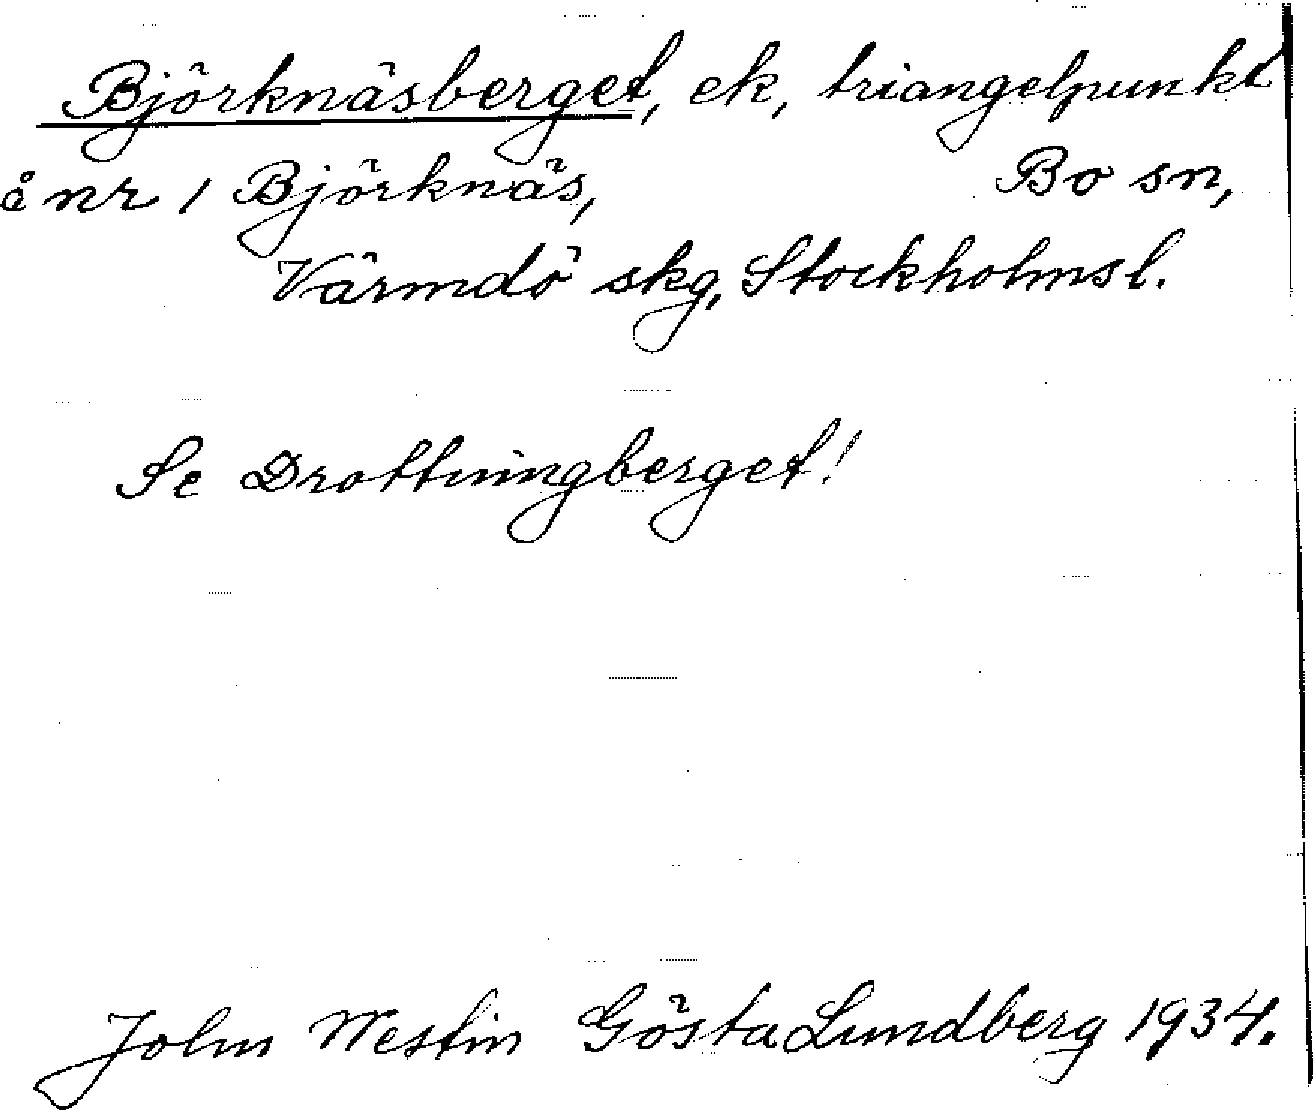 Björknäsberget, ek, triangelpunkt
å nr 1 Björknäs, Bo sn,
Värmdö skg, Stockholmsl.
Se Drottningberget!
John Westin Gösta Lundberg 1934.